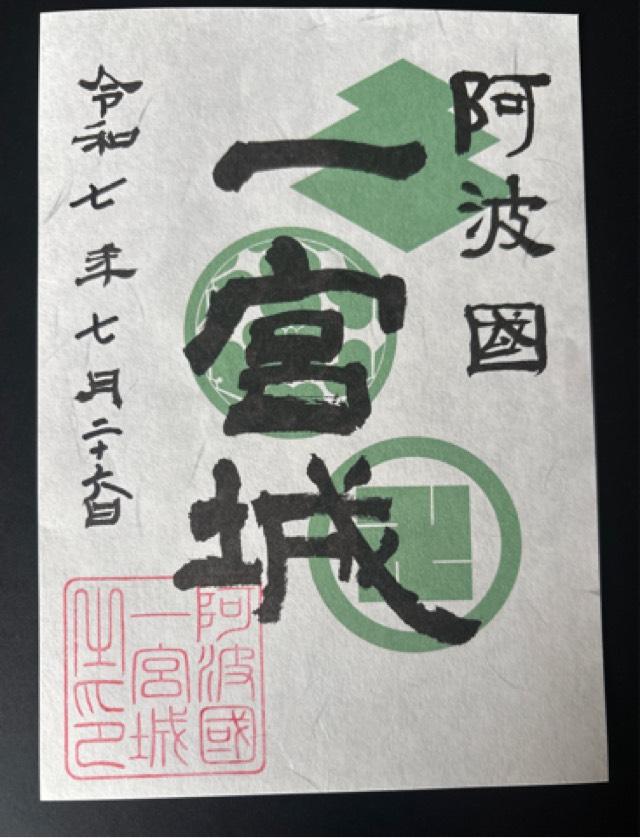 阿波國
一宮城
令和七年七月二十六日
阿波國
一宮城
之印